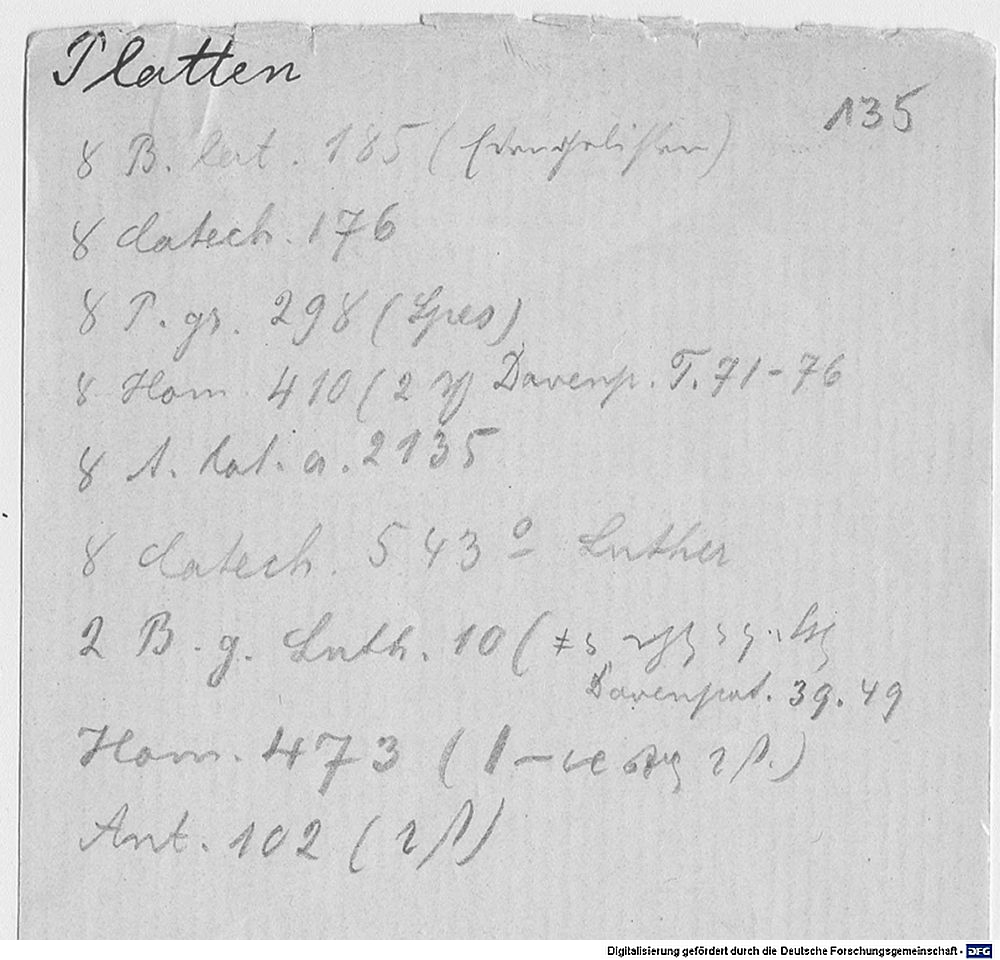 Platten
135
8 B. lat. 185 (Evangelisten)
8 Catech. 176
8 P. gr. 298 (Spes)
8 Hom. 410 (2 Davenp. T. 71-76
8 A. lat. a. 2135
8 Catech. 543º Luther
2 B. g. Luth. 10 (
Davenport. 39. 49
Hom. 473 (
Ant. 102 (
Digitalisierung gefördert durch die Deutsche Forschungsgemeinschaft - DFG